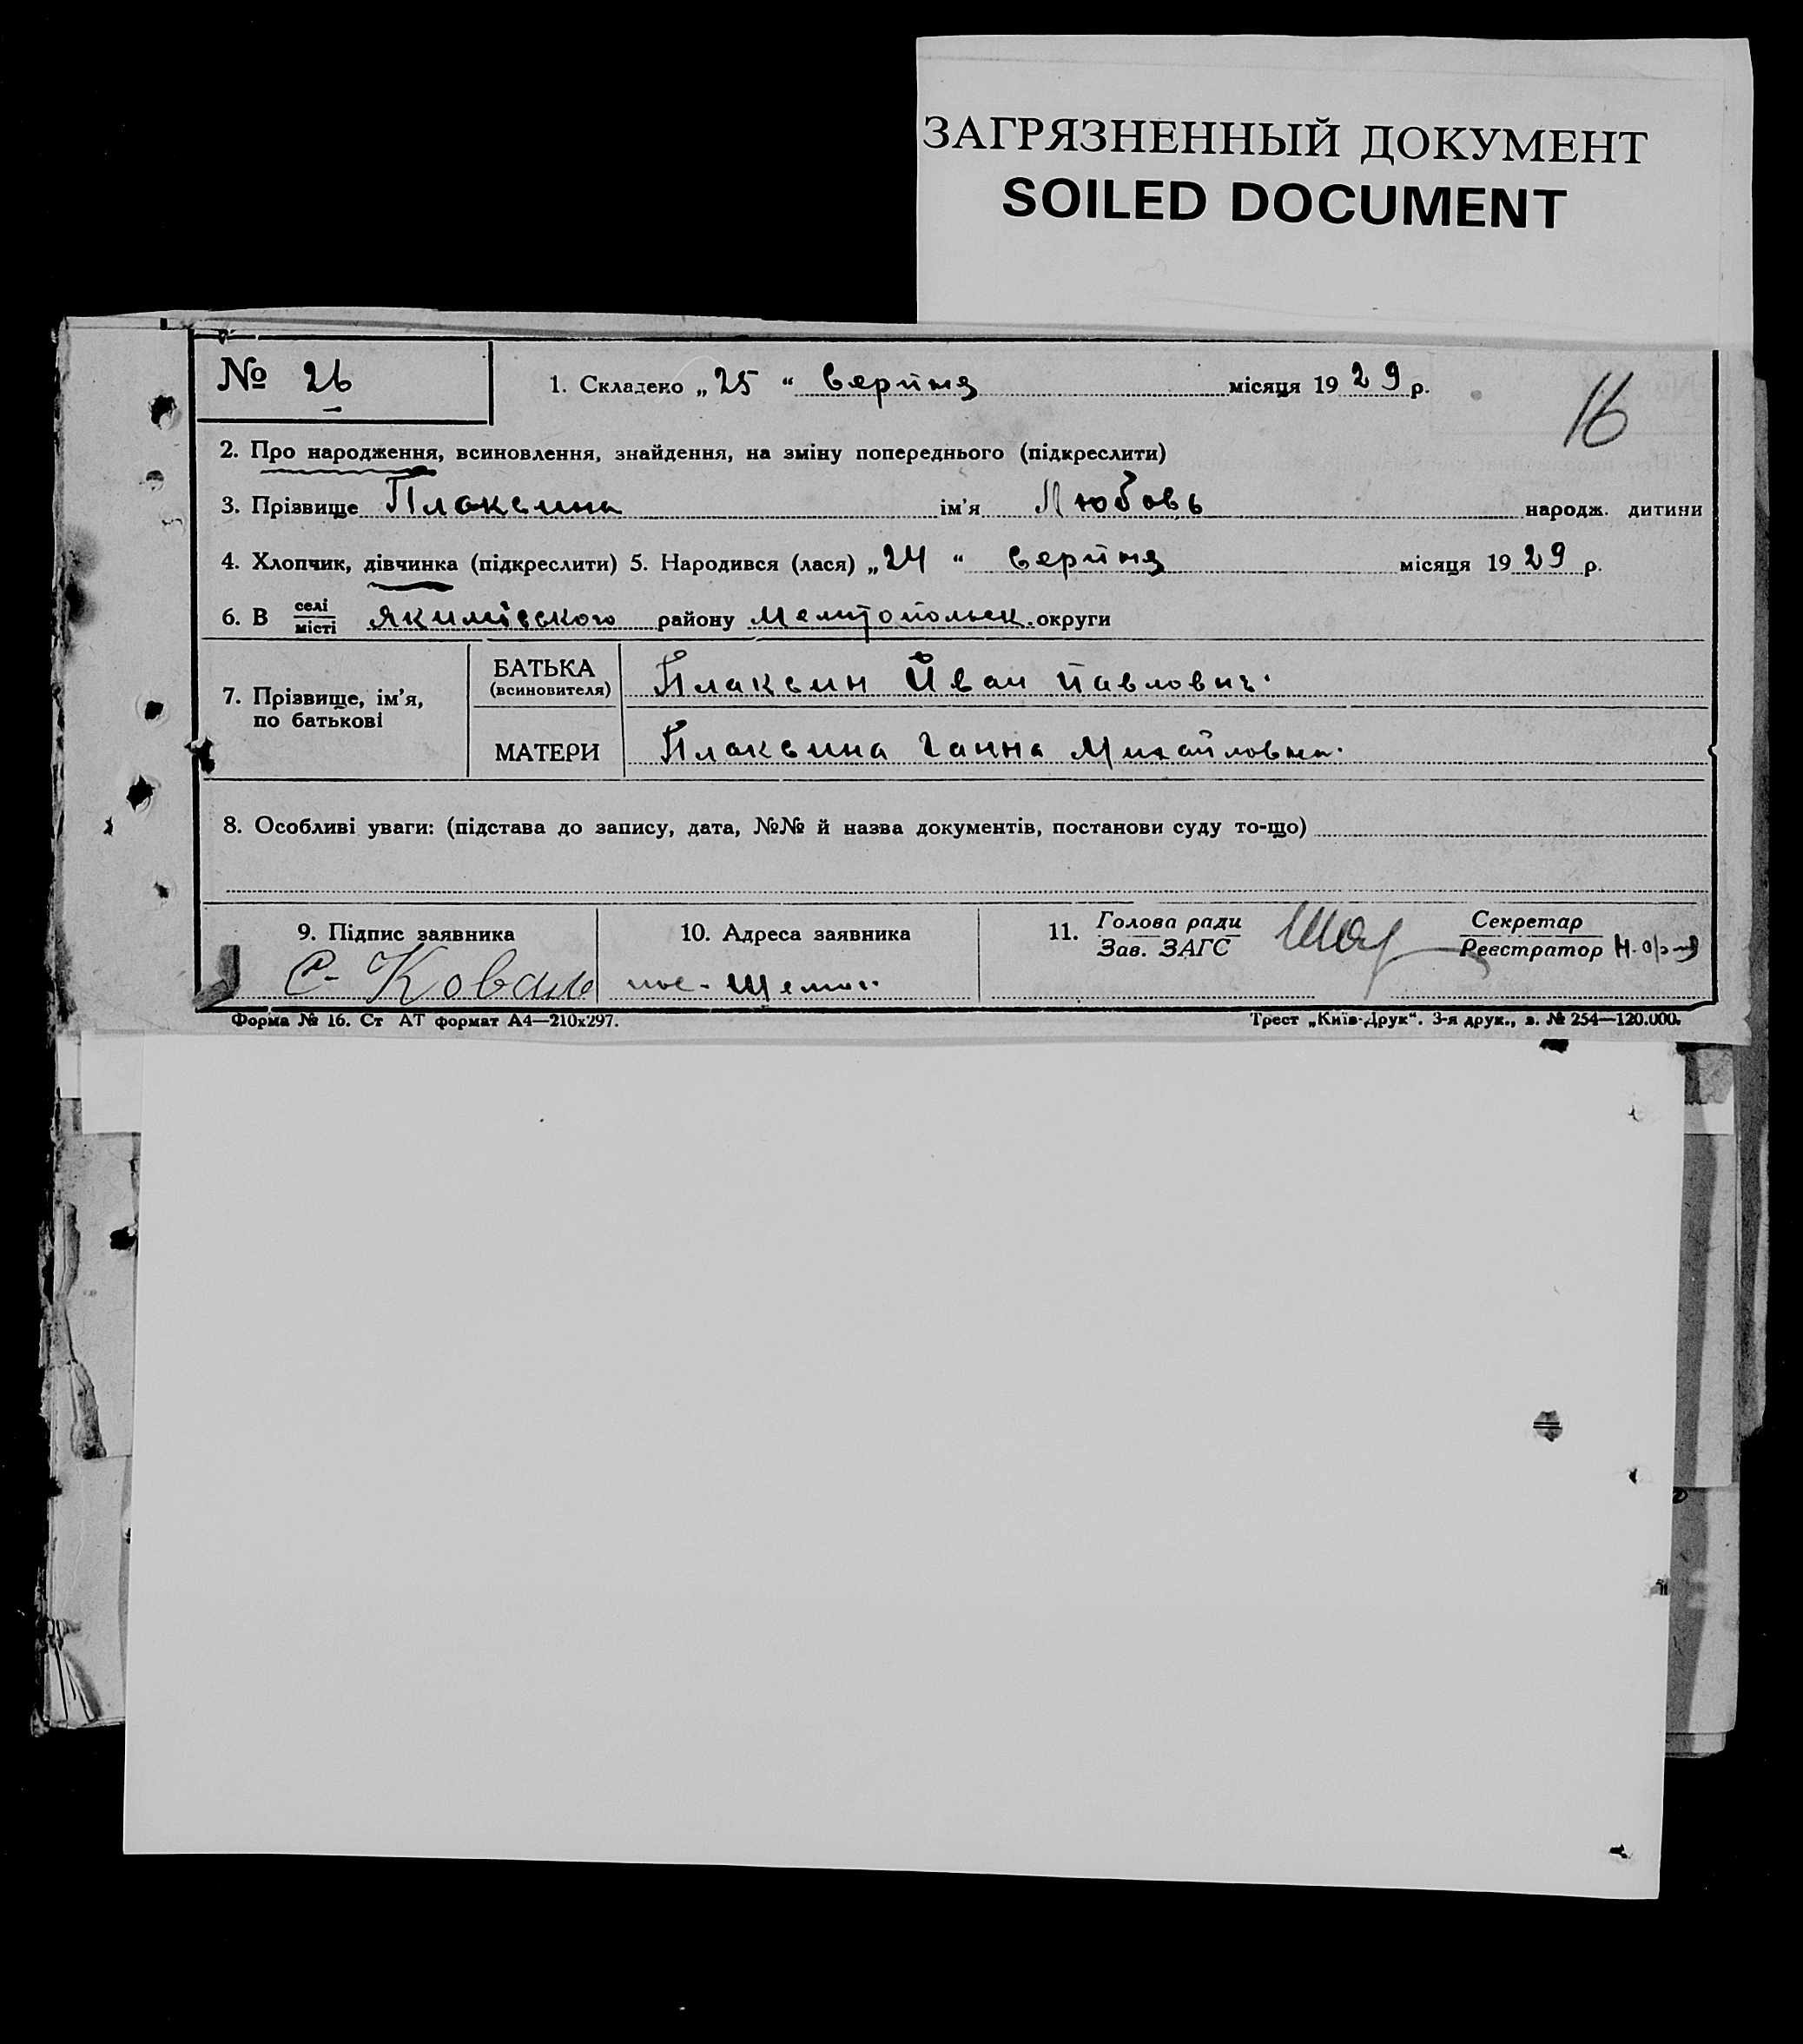 ЗАГРЯЗНЕННЫЙ ДОКУМЕНТ
SOILED DOCUMENT
№ 26
1. Складено „25“ Серпня місяця 1929 р.
16
2. Про народження, всиновлення, знайдення, на зміну попереднього (підкреслити)
3. Прізвище Плаксина ім'я Любовь народж. дитини
4. Хлопчик, дівчинка (підкреслити) 5. Народився (лася) „24“ Серпня місяця 1929 р.
6. В селі/місті Якимівского району Мелітопольск. округи
7. Прізвище, ім'я, по батькові
БАТЬКА (всиновителя) Плаксин Йван Павлович.
МАТЕРИ Плаксина Ганна Михайловна.
8. Особливі уваги: (підстава до запису, дата, №№ й назва документів, постанови суду то-що)
9. Підпис заявника
10. Адреса заявника
11. Голова ради/Зав. ЗАГС
Секретар/Реєстратор
С. Коваль
пос.
Форма № 16. Ст АТ формат А4—210х297.
Трест „Київ-Друк“. 3-я друк., з. № 254—120.000.